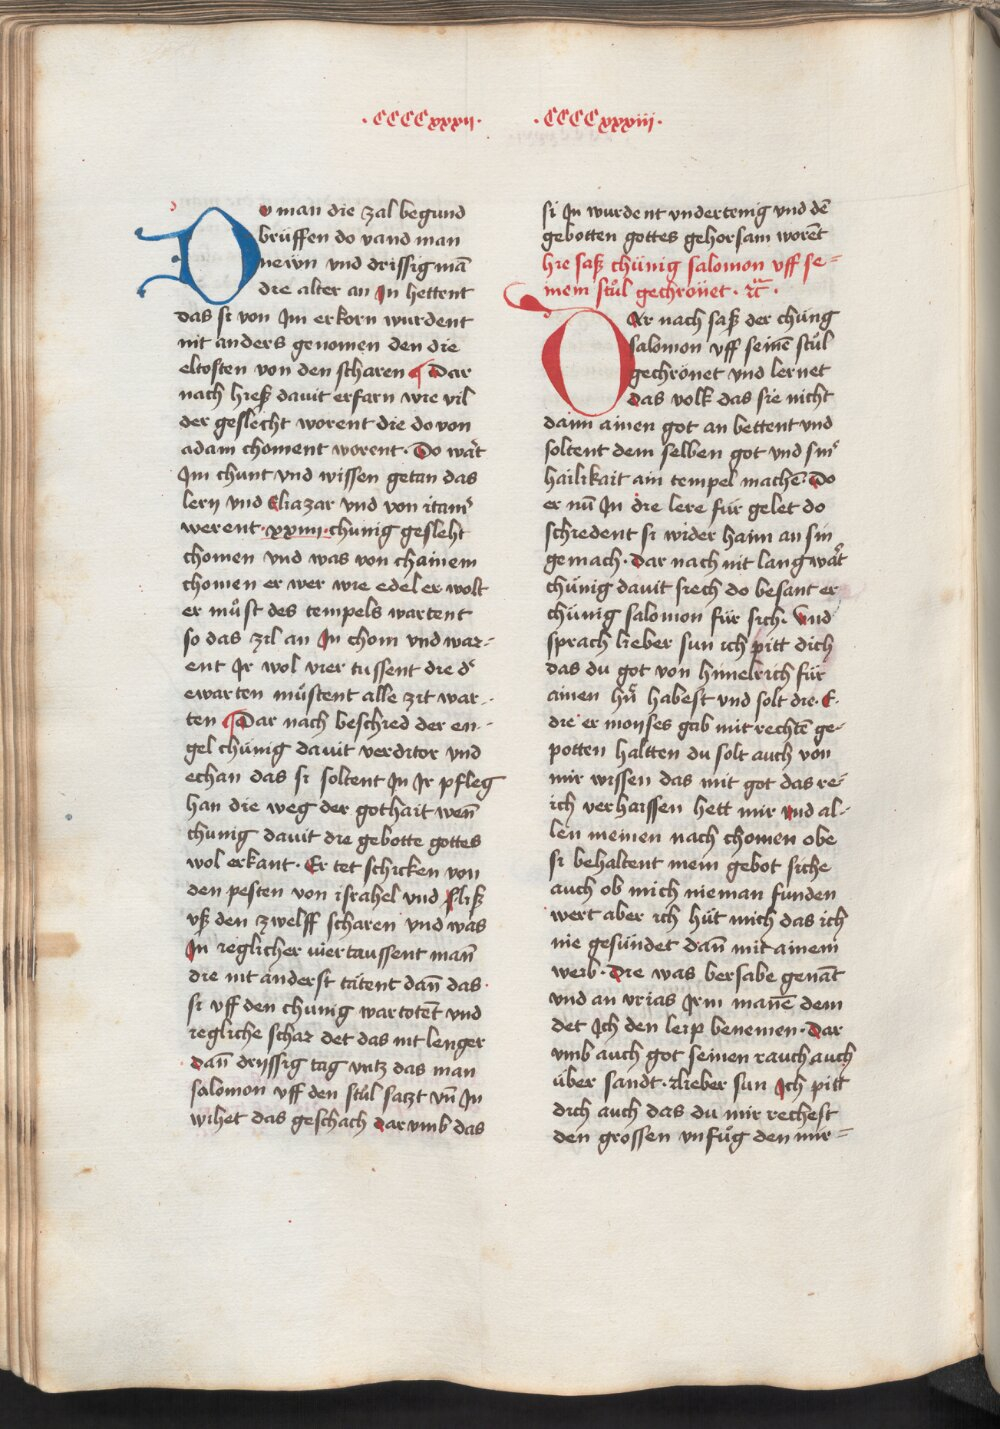 ·CCCCxxxij·
Do man die zal begund
brüffen do vand man
newn vnd drissig mā
die alter an Jn hettent
das si von Jm erkorn wurdent
nit anders genomen den die
eltosten von den scharen ¶ Dar
nach hieß dauit erfarn wie vil
der geslecht worent die do von
adam choment worent· Do wart
Jm chunt vnd wissen getan das
lern vnd Eliazar vnd von itam̄
werent·xxiiii·chunig gesleht
chomen vnd was von chainem
chomen er wer wie edel er wolt
er mu̇st des tempels wartent
so das zil an Jn chom vnd war-
ent Jr wol vier tussent die d'
ewarten mu̇stent alle zit war-
ten ¶ Dar nach beschied der en-
gel chünig dauit verditor vnd
echan das si soltent Jn Jr pfleg
han die weg der gothait wen̄
chunig dauit die gebotte gottes
wol erkant· Er tet schicken von
den pesten von israhel vnd fliß
vß den zwelff scharen vnd was
Jn reglicher viertaussent man̄
die nit anderst tätent dan̄ das·
si vff den chunig wartotēt vnd
regliche schar det das nit lenger
dan̄ drijssig tag vntz das man
salomon vff den stůl satzt vn̄ Jn
wihet das geschach dar vmb das
·CCCCxxxiii·
si Jn wurdent vndertenig vnd dē
gebotten gottes gehorsam worēt
hie saß chünig salomon vff se=
inem stůl gechrönet· ꝛc̄·
Dar nach saß der chüng
salomon vff seinē stůl
gechrönet vnd lernet
das volk das sie nicht
dann ainen got an bettent vnd
soltent dem selben got vnd sin'
hailikait ain tempel machē· Do
er nu̇ Jn die lere für gelet do
schiedent si wider haim an sin
gemach· Dar nach nit lang wart
chünig dauit siech do besant er
chünig salomon für sich· Vnd
sprach lieber sun ich pitt dich
das du got von himelrich für
ainen hr̄ habest vnd solt die·E·
die er moyses gab mit rechtē ge-
potten haltten du solt auch von
mir wissen das mit got das re-
ich verhaissen hett mir vnd al-
len meinen nach chomen obe
si behaltent mein gebot siche
auch ob mich nieman funden
wert aber ich hüt mich das ich
nie gesündet dan̄ mit ainem
weib· Die was bersabe genāt
vnd an vrias Jrm manē dem
det Jch den leip benemen· Dar
vmb auch got seinen rauch auch
über sandt· lieber sun Jch pitt
dich auch das du mir rechest
den grossen vnfůg den mir=